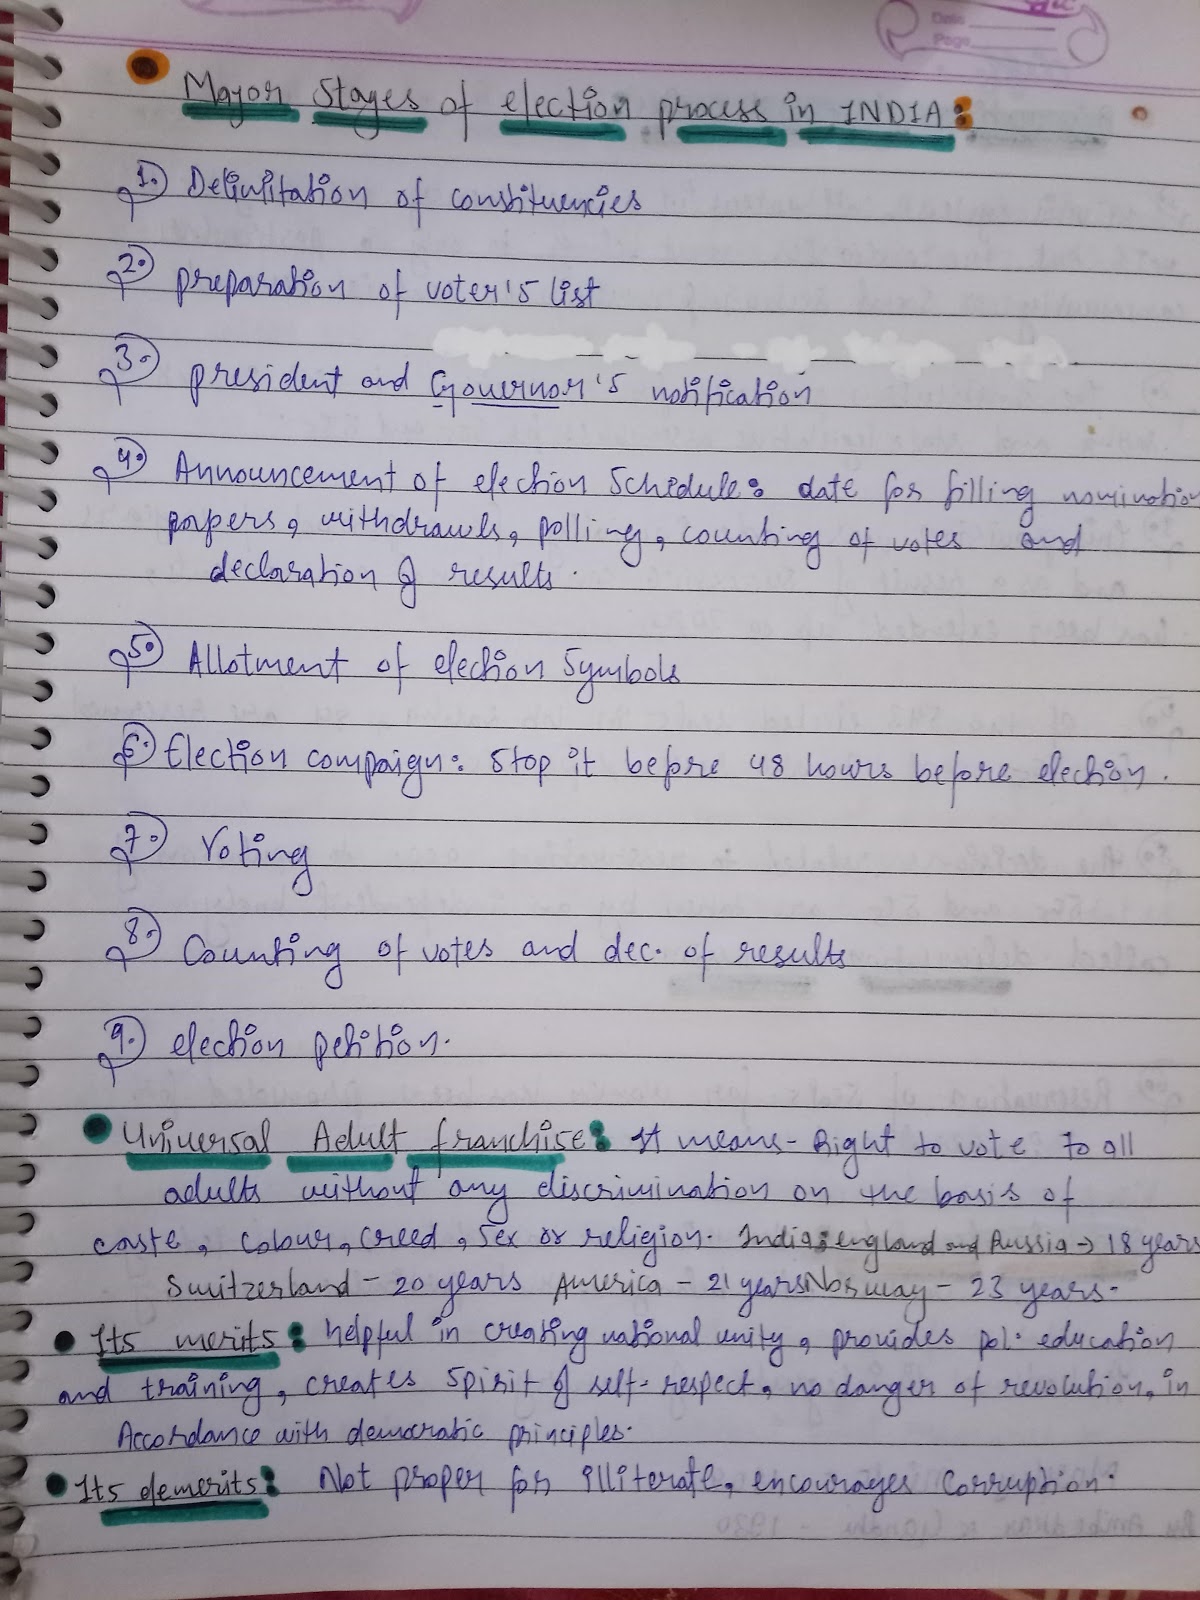 Date
Page
Major Stages of election process in INDIA:
1. Delimitation of constituencies
2. preparation of voter's list
3. president and Governor's notification
4. Announcement of election Schedule: date for filling nomination
papers, withdrawls, polling, counting of votes and
declaration of results.
5. Allotment of election Symbols
6. Election compaign: Stop it before 48 hours before election.
7. Voting
8. Counting of votes and dec. of results
9. election petition.
Universal Adult franchise: It means - Right to vote to all
adults without any discrimination on the basis of
caste, colour, creed, sex or religion. India, england and Russia → 18 years
Switzerland - 20 years America - 21 years Norway - 23 years.
Its merits: helpful in creating national unity, provides pol. education
and training, creates spirit of self-respect, no danger of revolution, in
Accordance with democratic principles.
Its demerits: Not proper for illiterate, encourages corruption.